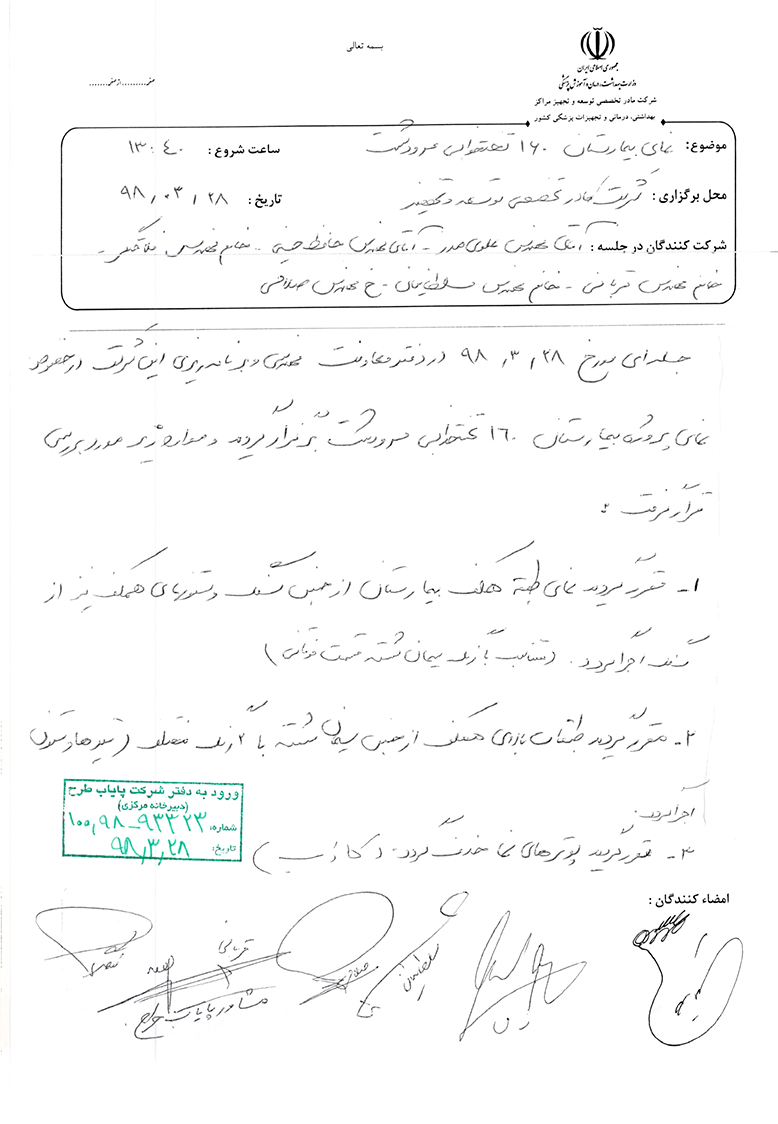 بسمه تعالی
جمهوری اسلامی ایران
وزارت بهداشت، درمان و آموزش پزشکی
شرکت مادر تخصصی توسعه و تجهیز مراکز
بهداشتی، درمانی و تجهیزات پزشکی کشور
صفحه..........از صفحه........
موضوع: نمای بیمارستان ۱۶۰ تختخوابی مرودشت ساعت شروع: ۱۳:۴۰
محل برگزاری: شرکت مادر تخصصی توسعه و تجهیز تاریخ: ۹۸/۰۳/۲۸
شرکت کنندگان در جلسه: آقای مهندس علوی صدر - آقای مهندس حافظ حسینی - خانم مهندس
خانم مهندس قربانی - خانم مهندس سلطانیان - خ مهندس صلاحی
جلسه‌ای مورخ ۹۸/۳/۲۸ در دفتر معاونت مهندسی و برنامه ریزی این شرکت در خصوص
نمای پروژه بیمارستان ۱۶۰ تختخوابی مرودشت برگزار گردید و موارد زیر مورد بررسی
قرار گرفت:
۱- مقرر گردید نمای طبقه همکف بیمارستان از جنس سنگ و ستونهای همکف نیز از
سنگ اجرا گردد. (متناسب با رنگ سیمان شسته قسمت فوقانی)
۲- مقرر گردید طبقات بالای همکف از جنس سیمان شسته با ۲ رنگ مختلف (تیرها و ستون
اجرا گردد.
۳- مقرر گردید پوترهای نما حذف گردد.
ورود به دفتر شرکت پایاب طرح
(دبیرخانه مرکزی)
شماره: ۱۰۰,۹۸-۹۳۲۲۳
تاریخ: ۹۸,۳,۲۸
امضاء کنندگان:
سلطانیان
صلاحی
قربانی
مشاور پایاب طرح